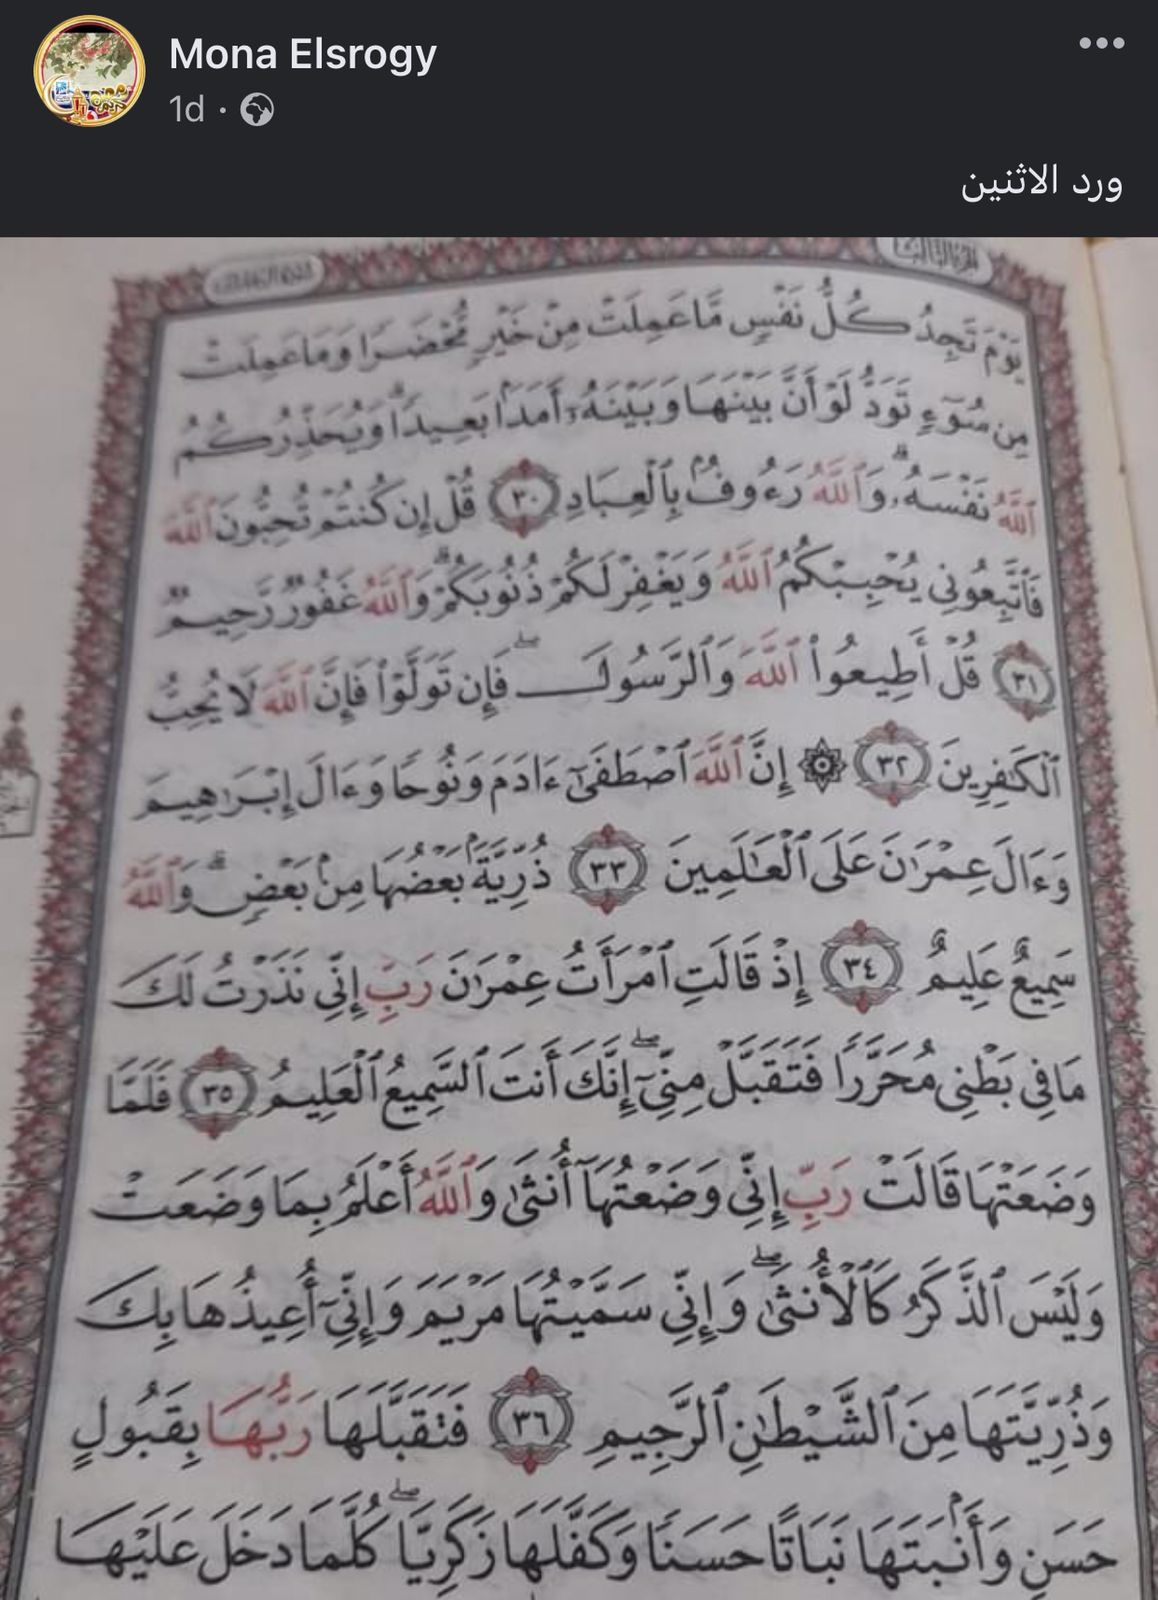 Mona Elsrogy
1d
ورد الاثنين
يَوْمَ تَجِدُ كُلُّ نَفْسٍ مَّا عَمِلَتْ مِنْ خَيْرٍ مُّحْضَرًا وَمَا عَمِلَتْ
مِن سُوٓءٍ تَوَدُّ لَوْ أَنَّ بَيْنَهَا وَبَيْنَهُۥٓ أَمَدًۢا بَعِيدًاۗ وَيُحَذِّرُكُمُ
ٱللَّهُ نَفْسَهُۥۗ وَٱللَّهُ رَءُوفُۢ بِٱلْعِبَادِ ٣٠ قُلْ إِن كُنتُمْ تُحِبُّونَ ٱللَّهَ
فَٱتَّبِعُونِى يُحْبِبْكُمُ ٱللَّهُ وَيَغْفِرْ لَكُمْ ذُنُوبَكُمْۗ وَٱللَّهُ غَفُورٌ رَّحِيمٌ
٣١ قُلْ أَطِيعُوا۟ ٱللَّهَ وَٱلرَّسُولَۖ فَإِن تَوَلَّوْا۟ فَإِنَّ ٱللَّهَ لَا يُحِبُّ
ٱلْكَـٰفِرِينَ ٣٢ ۞ إِنَّ ٱللَّهَ ٱصْطَفَىٰٓ ءَادَمَ وَنُوحًا وَءَالَ إِبْرَٰهِيمَ
وَءَالَ عِمْرَٰنَ عَلَى ٱلْعَـٰلَمِينَ ٣٣ ذُرِّيَّةًۢ بَعْضُهَا مِنۢ بَعْضٍۗ وَٱللَّهُ
سَمِيعٌ عَلِيمٌ ٣٤ إِذْ قَالَتِ ٱمْرَأَتُ عِمْرَٰنَ رَبِّ إِنِّى نَذَرْتُ لَكَ
مَا فِى بَطْنِى مُحَرَّرًا فَتَقَبَّلْ مِنِّىٓۖ إِنَّكَ أَنتَ ٱلسَّمِيعُ ٱلْعَلِيمُ ٣٥ فَلَمَّا
وَضَعَتْهَا قَالَتْ رَبِّ إِنِّى وَضَعْتُهَآ أُنثَىٰ وَٱللَّهُ أَعْلَمُ بِمَا وَضَعَتْ
وَلَيْسَ ٱلذَّكَرُ كَٱلْأُنثَىٰۖ وَإِنِّى سَمَّيْتُهَا مَرْيَمَ وَإِنِّىٓ أُعِيذُهَا بِكَ
وَذُرِّيَّتَهَا مِنَ ٱلشَّيْطَـٰنِ ٱلرَّجِيمِ ٣٦ فَتَقَبَّلَهَا رَبُّهَا بِقَبُولٍ
حَسَنٍ وَأَنۢبَتَهَا نَبَاتًا حَسَنًا وَكَفَّلَهَا زَكَرِيَّاۖ كُلَّمَا دَخَلَ عَلَيْهَا